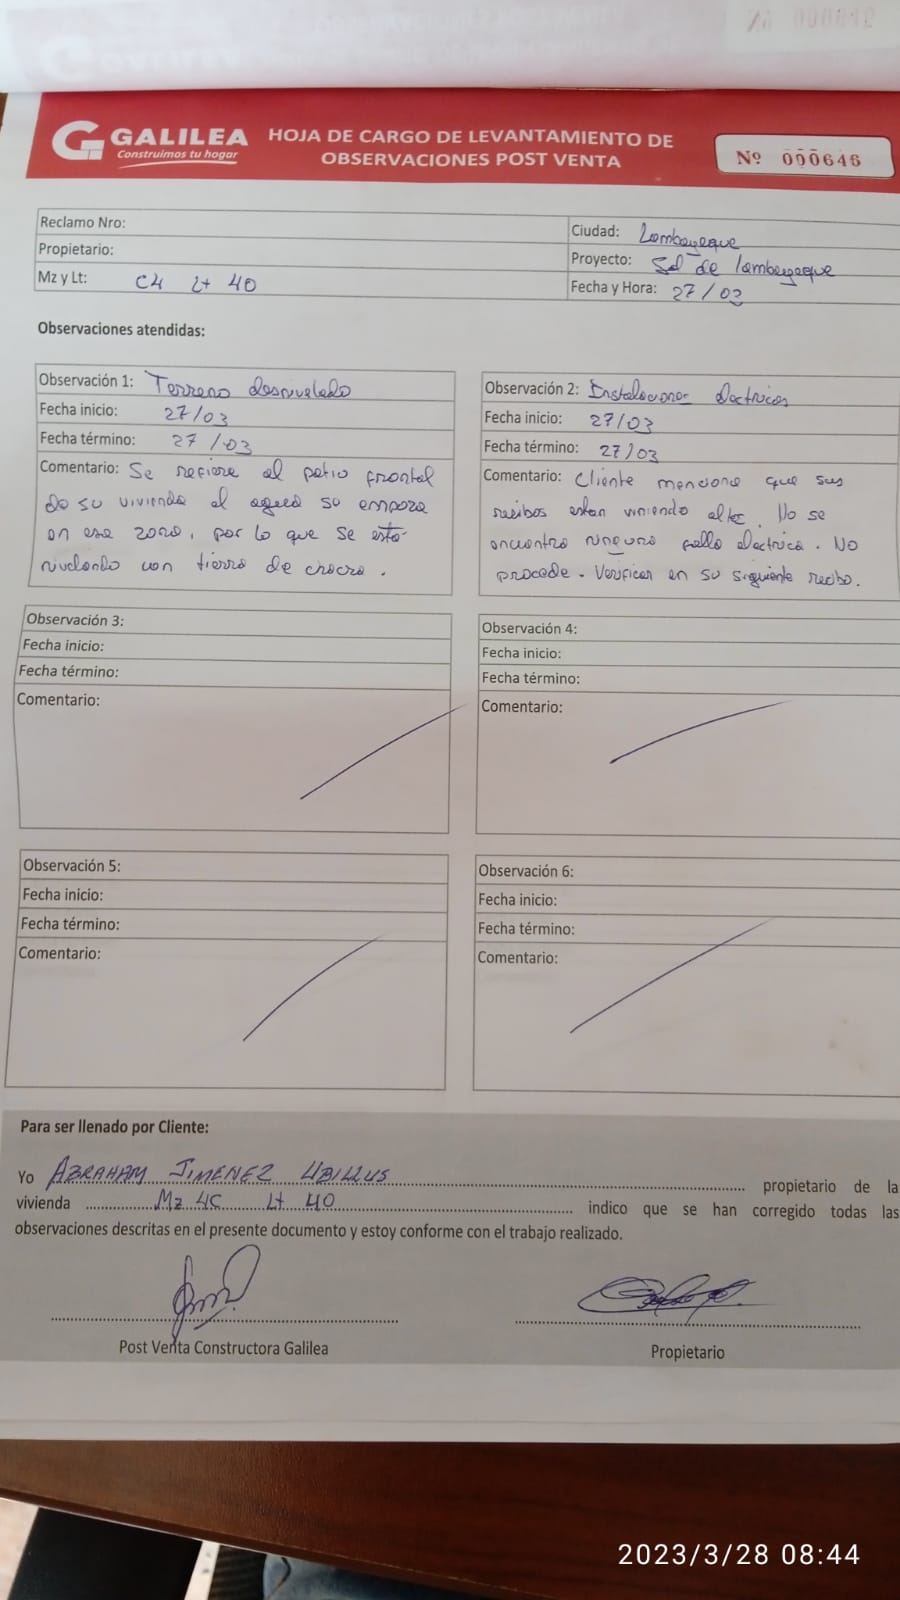 GALILEA
Construimos tu hogar
HOJA DE CARGO DE LEVANTAMIENTO DE
OBSERVACIONES POST VENTA
Nº 000646
Reclamo Nro:
Propietario:
Mz y Lt: C4 Lt 40
Ciudad: Lambayeque
Proyecto: Sol de lambayeque
Fecha y Hora: 27/03
Observaciones atendidas:
Observación 1: Terreno desnivelado
Fecha inicio: 27/03
Fecha término: 27/03
Comentario: Se refiere al patio frontal
de su vivienda el agua se empoza
en esa zona, por lo que se esta
nivelando con tierra de chacra.
Observación 2: Instalaciones electricas
Fecha inicio: 27/03
Fecha término: 27/03
Comentario: Cliente menciona que sus
recibos estan viniendo altos. No se
encuentra ninguna falla electrica. No
procede. Verificar en su siguiente recibo.
Observación 3:
Fecha inicio:
Fecha término:
Comentario:
Observación 4:
Fecha inicio:
Fecha término:
Comentario:
Observación 5:
Fecha inicio:
Fecha término:
Comentario:
Observación 6:
Fecha inicio:
Fecha término:
Comentario:
Para ser llenado por Cliente:
Yo ABRAHAM JIMENEZ UBILLUS propietario de la
vivienda Mz 4C Lt 40 indico que se han corregido todas las
observaciones descritas en el presente documento y estoy conforme con el trabajo realizado.
Post Venta Constructora Galilea
Propietario
2023/3/28 08:44